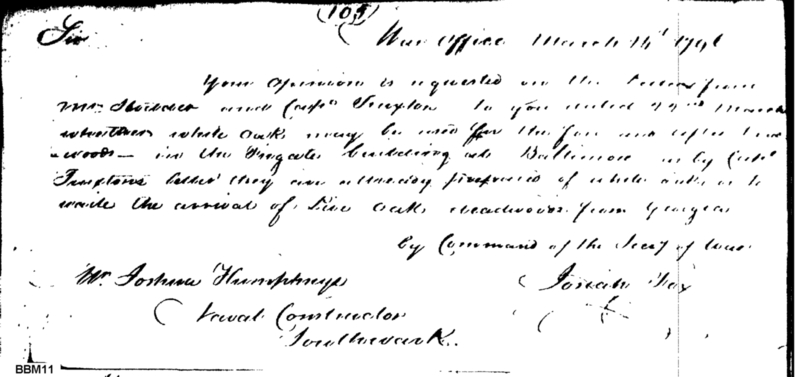 (109)
Sir War Office March 1796
Your opinion is requested on the Letters from
Mr Stodder and Capt Truxton to you dated 22nd March
whether white oak may be used for the fore and after dead
woods — in the Frigate building at Baltimore as by Capt
Truxtons letter they are already prepared of white oak or to
waite the arrival of Live oak deadwoods from Georgia
by Command of the Secy of War
Mr Joshua Humphreys Josiah Fox
Naval Constructor
Southwark.
BBM11